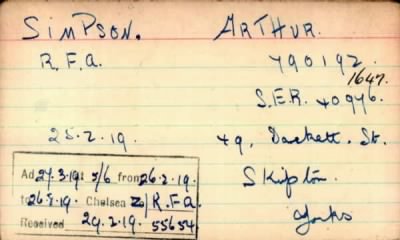 SIMPSON. ARTHUR.
R.F.A. 790192
1647.
S.E.R. 40976.
25.2.19. 49, Daskett. St.
Skipton.
Yorks
Ad 27.3.19 at 5/6 from 26.2.19.
to 26.5.19. Chelsea Z/R.F.A.
Received 29.2.19. 55654